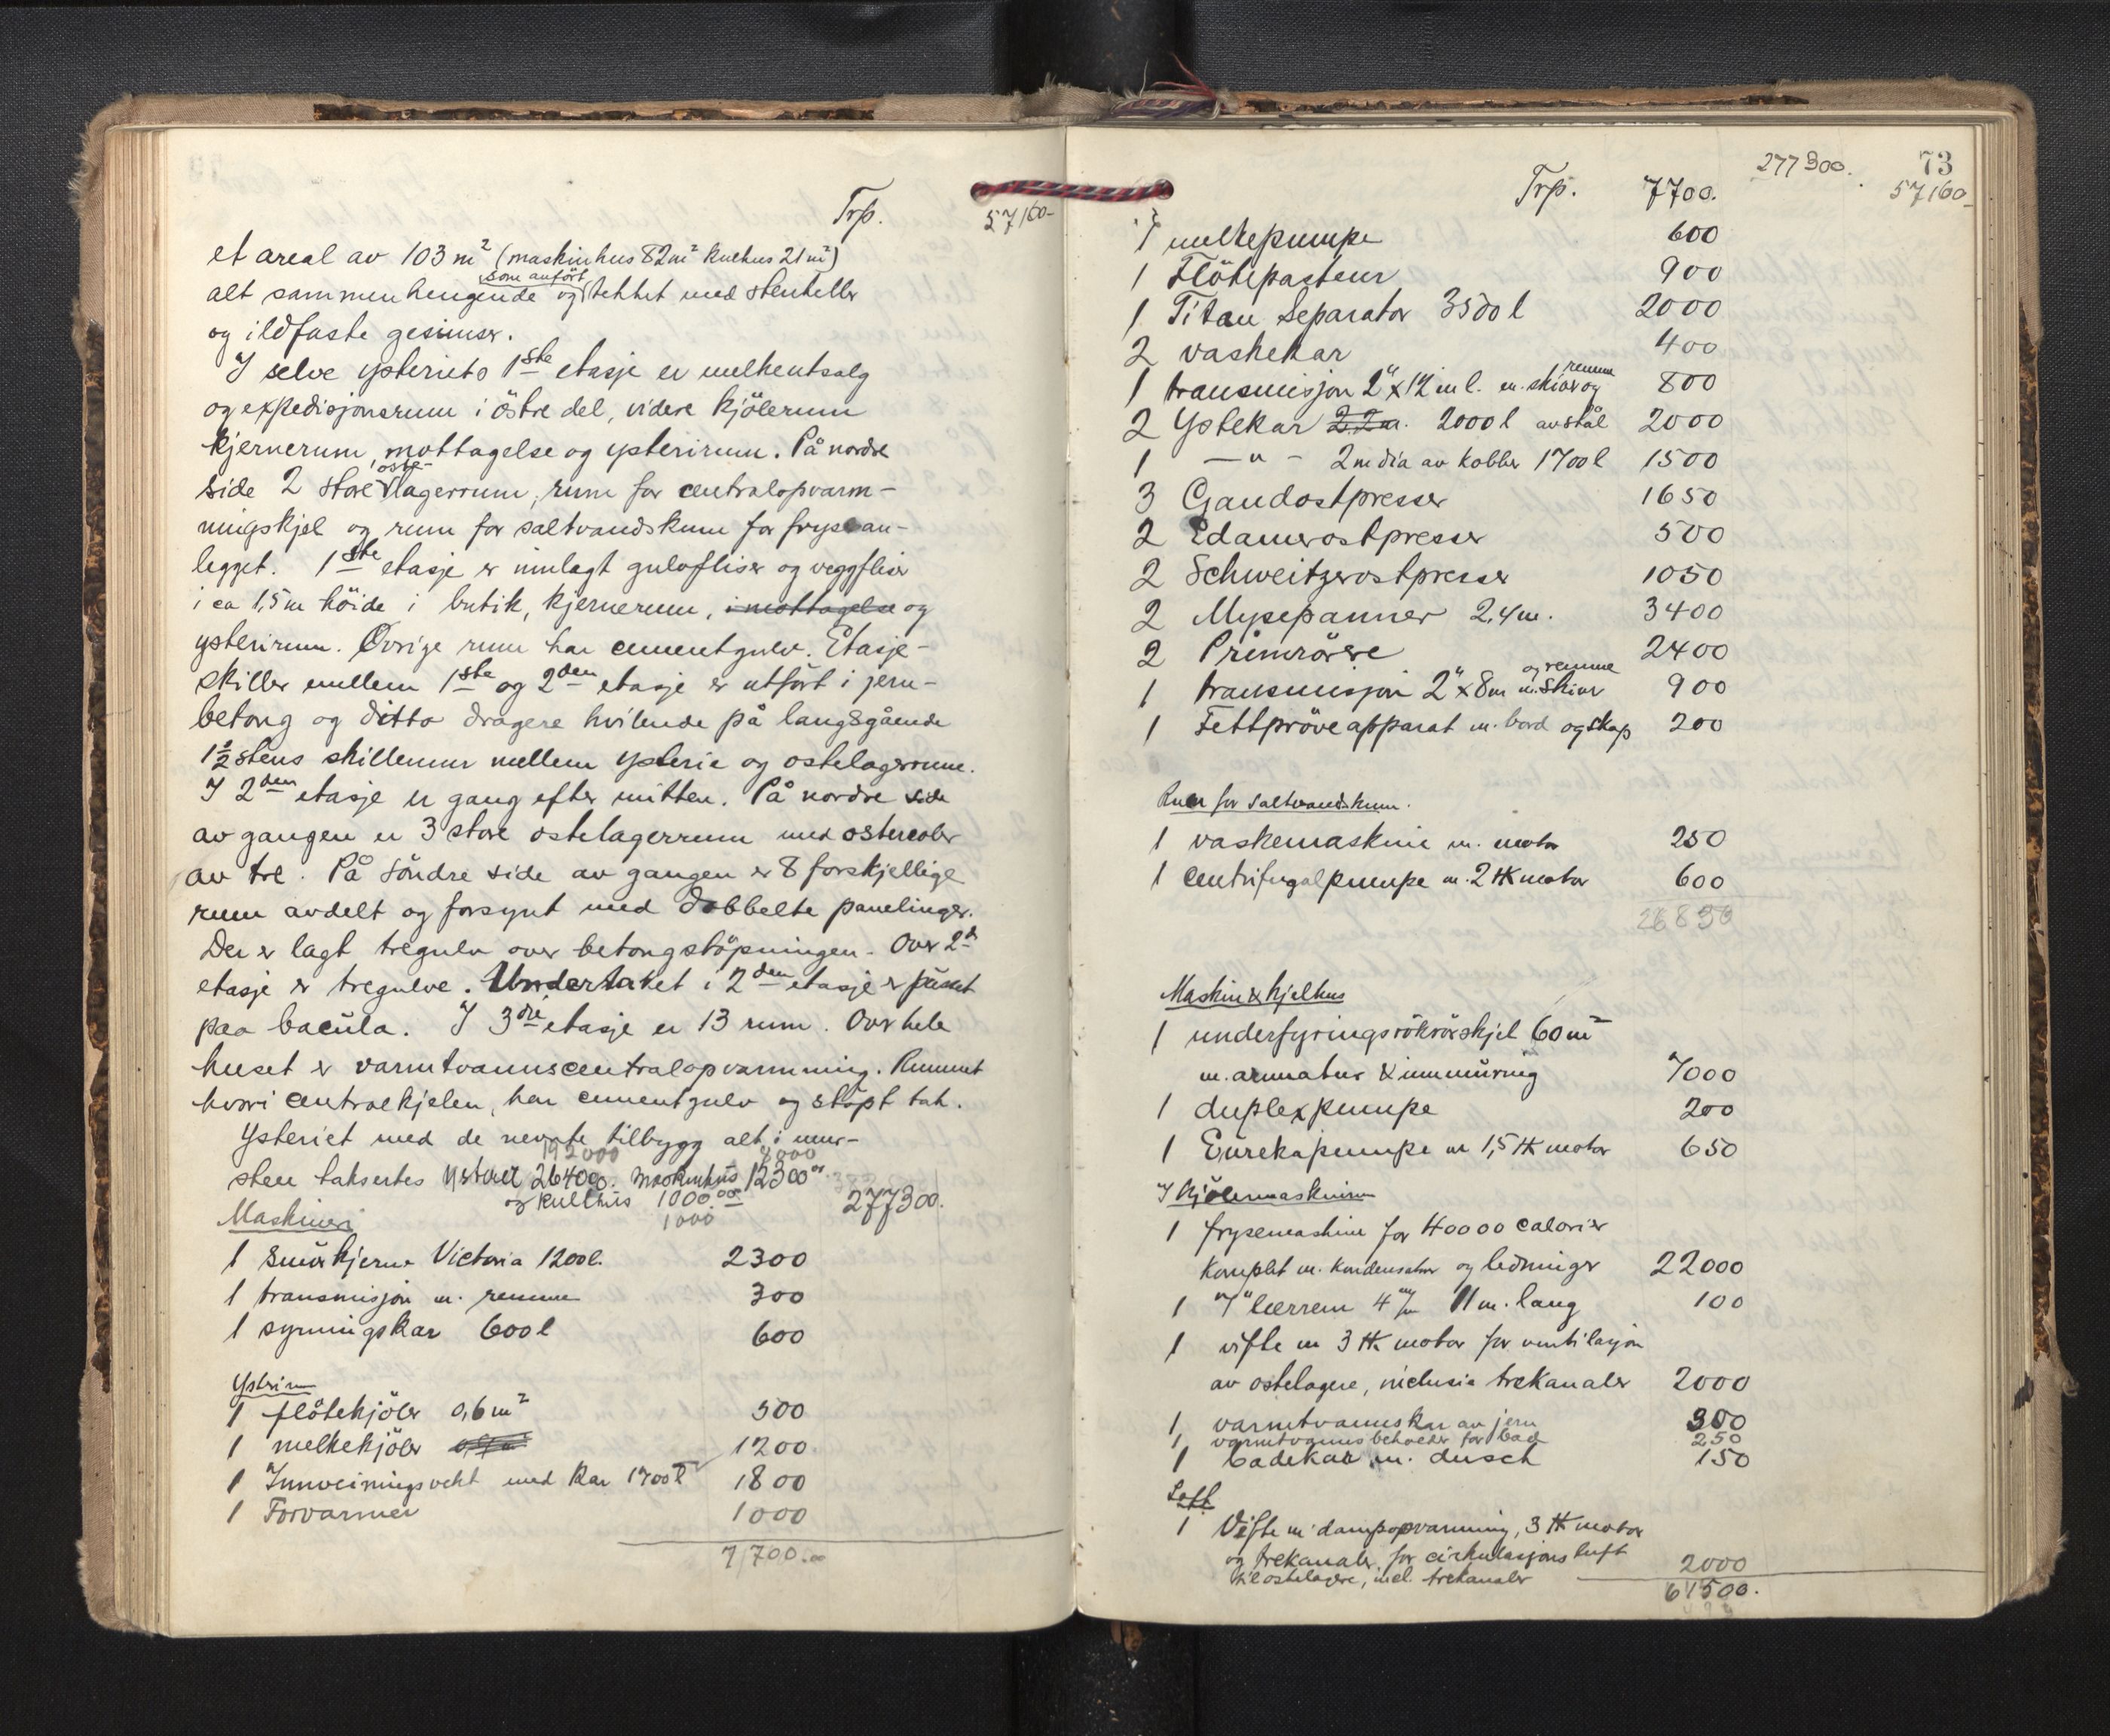 Trp.
57160-
et areal av 103 m² (maskinhus 82m² kulhus 21m²)
som anfört
alt sammenhengende og tekket med stenheller
og ildfaste gesimser.
I selve ysteriets 1ste etasje er melkeutsalg
og expedisjonsrum i östre del, videre kjölerum
kjernerum, mottagelse og ysterirum. På nordre
oste-
side 2 store lagerrum, rum for centralopvarm-
ningskjel og rum for saltvandskum for fryse an-
legget. 1ste etasje er innlagt gulvfliser og veggfliser
i ca 1,5m höide i butik, kjernerum, i mottagelse og
ysterirum. Övrige rum har cementgulv. Etasje-
skiller mellem 1ste og 2den etasje er utfört i jern-
betong og ditto dragere hvilende på langsgående
1½ stens skillemur mellem ysteri og ostelagerrum.
I 2den etasje er gang efter mitten. På nordre side
av gangen er 3 store ostelagerrum med ostereoler
av tre. På söndre side av gangen er 8 forskjellige
rum avdelt og forsynt med dobbelte panelinger.
Der er lagt tregulv over betongstöpningen. Over 2d
etasje er tregulve. Undertaket i 2den etasje er pusset
paa bacula. I 3dre etasje er 13 rum. Over hele
huset er varmtvannscentralopvarmning. Rummet
hvori centralkjelen, har cementgulv og stöpt tak.
Ysteriet med de nevnte tilbygg alt i mur-
192000 8000
sten taksertes ysteriet 264000. maskinhus 12300.00
og kullhus 1000.00 277300.
1000
Maskineri
1 Smörkjerne Victoria 1200l. 2300
1 transmisjon m. remme 300
1 syrningskar 600 l 600
Ysterirum
1 flötekjöler 0,6 m² 500
1 melkekjöler 1200
1 Innveiningsvekt med kar 1700 l 1800
1 Forvarmer 1000
7700.00
277300.
73
Trp. 7700.
57160-
1 melkepumpe 600
1 Flötepasteur 900
1 Titan Separator 3500 l 2000
2 vaskekar 400
remme
1 transmisjon 2" x 12 m l. m. skiver og 800
2 Ystekar 2.2m. 2000 l av stål 2000
1 — " — 2 m dia av kobber 1700 l 1500
3 Gaudostpresser 1650
2 Edamerostpresser 500
2 Schweitzerostpresser 1050
2 Mysepanner 2,4 m. 3400
2 Primrörere 2400
og remme
1 transmisjon 2" x 8m m. skiver 900
1 Fettpröveapparat m. bord og skap 200
Rum for saltvandskum.
1 vaskemaskine m. motor 250
1 centrifugalpumpe m. 2 HK motor 600
26850
Maskin & kjelhus
1 underfyringsrökrörskjel 60 m²
m. armatur & innmuring 7000
1 duplexpumpe 200
1 Eurekapumpe m 1,5 HK motor 650
I kjölemaskinrum
1 frysemaskine for 40000 calorier
komplet m. kondensator og ledninger 22000
1 7" lærrem 4 m/m 11 m. lang 100
1 vifte m 3 HK motor for ventilasjon
av ostelagere, inclusiv trekanaler 2000
1 varmtvannskar av jern 300
1 varmtvannsbeholder for bad 250
1 badekar m. dusch 150
Loft
1 Vifte m dampopvarmning, 3 HK motor
og trekanaler for cirkulasjonsluft
til ostelagere, incl. trekanaler 2000
61500.